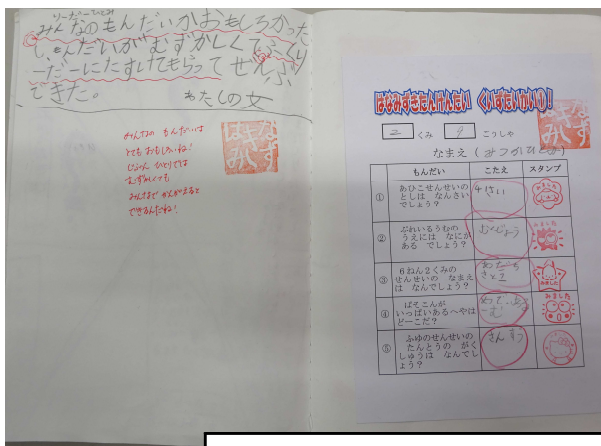 りーだーひとみ
みんなのもんだいがおもしろかった
し、もんだいがむずかしくて
ーだーにたすけてもらってぜんぶ
できた。
みんなの もんだいは
とても おもしろいね！
じぶん ひとりでは
むずかしくても
みんなで かんがえると
できるんだね！
はなみずき
はなみずきたんけんたい くいずたいかい①！
2 くみ 9 ごうしゃ
はなみずき
なまえ
もんだい こたえ スタンプ
① あひこせんせいの としは なんさい でしょう？ 4さい みました
② ぷれいるうむの うえには なにが ある でしょう？ おくじょう みました
③ 6ねん2くみの せんせいの なまえ は なんでしょう？ みました
④ ぱそこんが いっぱいあるへやは どーこだ？ みました
⑤ ふゆのせんせいの たんとうの がくしゅうは なんでしょう？ さんすう